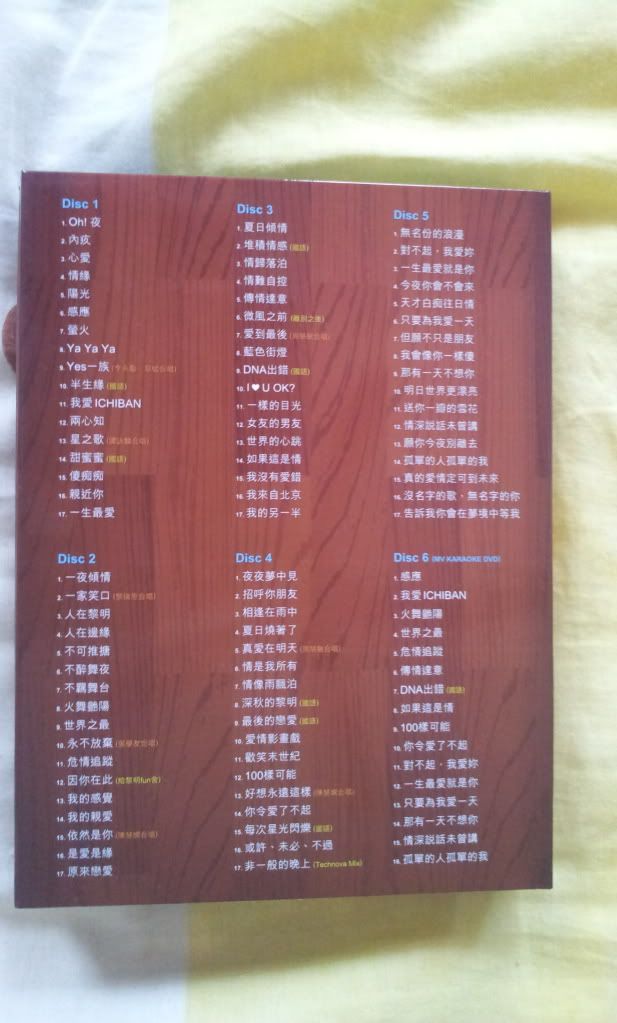 Disc 1
1. Oh! 夜
2. 內疚
3. 心愛
4. 情緣
5. 陽光
6. 感應
7. 螢火
8. Ya Ya Ya
9. Yes一族
10. 半生緣 (國語)
11. 我愛 ICHIBAN
12. 兩心知
13. 星之歌
14. 甜蜜蜜 (國語)
15. 傻痴痴
16. 親近你
17. 一生最愛
Disc 2
1. 一夜傾情
2. 一家笑口
3. 人在黎明
4. 人在邊緣
5. 不可推搪
6. 不醉舞夜
7. 不羈舞台
8. 火舞艷陽
9. 世界之最
10. 永不放棄 (張學友合唱)
11. 危情追蹤
12. 因你在此 (給黎明fun會)
13. 我的感覺
14. 我的親愛
15. 依然是你 (陳慧嫻合唱)
16. 是愛是緣
17. 原來戀愛
Disc 3
1. 夏日傾情
2. 堆積情感 (國語)
3. 情歸落泊
4. 情難自控
5. 傳情達意
6. 微風之前
7. 愛到最後
8. 藍色街燈
9. DNA出錯 (國語)
10. I ♥ U OK?
11. 一樣的目光
12. 女友的男友
13. 世界的心跳
14. 如果這是情
15. 我沒有愛錯
16. 我來自北京
17. 我的另一半
Disc 4
1. 夜夜夢中見
2. 招呼你朋友
3. 相逢在雨中
4. 夏日燒著了
5. 真愛在明天
6. 情是我所有
7. 情像雨飄泊
8. 深秋的黎明 (國語)
9. 最後的戀愛 (國語)
10. 愛情影畫戲
11. 歡笑末世紀
12. 100樣可能
13. 好想永遠這樣 (陳慧嫻合唱)
14. 你令愛了不起
15. 每次星光閃爍 (國語)
16. 或許、未必、不過
17. 非一般的晚上 (Technova Mix)
Disc 5
1. 無名份的浪漫
2. 對不起，我愛妳
3. 一生最愛就是你
4. 今夜你會不會來
5. 天才白痴往日情
6. 只要為我愛一天
7. 但願不只是朋友
8. 我會像你一樣傻
9. 那有一天不想你
10. 明日世界更漂亮
11. 送你一瓣的雪花
12. 情深說話未曾講
13. 願你今夜別離去
14. 孤單的人孤單的我
15. 真的愛情定可到未來
16. 沒名字的歌，無名字的你
17. 告訴我你會在夢境中等我
Disc 6 (MV KARAOKE DVD)
1. 感應
2. 我愛ICHIBAN
3. 火舞艷陽
4. 世界之最
5. 危情追蹤
6. 傳情達意
7. DNA出錯 (國語)
8. 如果這是情
9. 100樣可能
10. 你令愛了不起
11. 對不起，我愛妳
12. 一生最愛就是你
13. 只要為我愛一天
14. 那有一天不想你
15. 情深說話未曾講
16. 孤單的人孤單的我